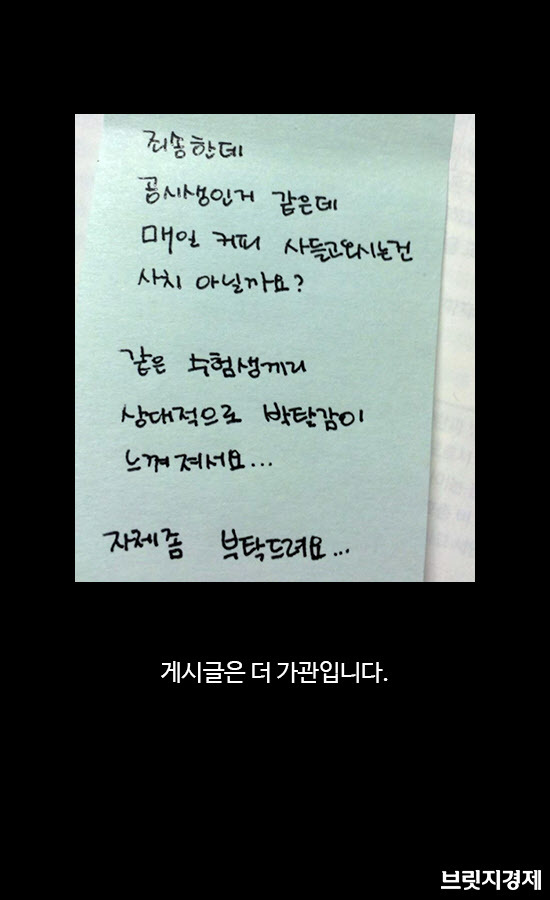 죄송한데
공시생인거 같은데
매일 커피 사들고오시는건
사치 아닐까요?
같은 수험생끼리
상대적으로 박탈감이
느껴져서요...
자제좀 부탁드려요...
게시글은 더 가관입니다.
브릿지경제